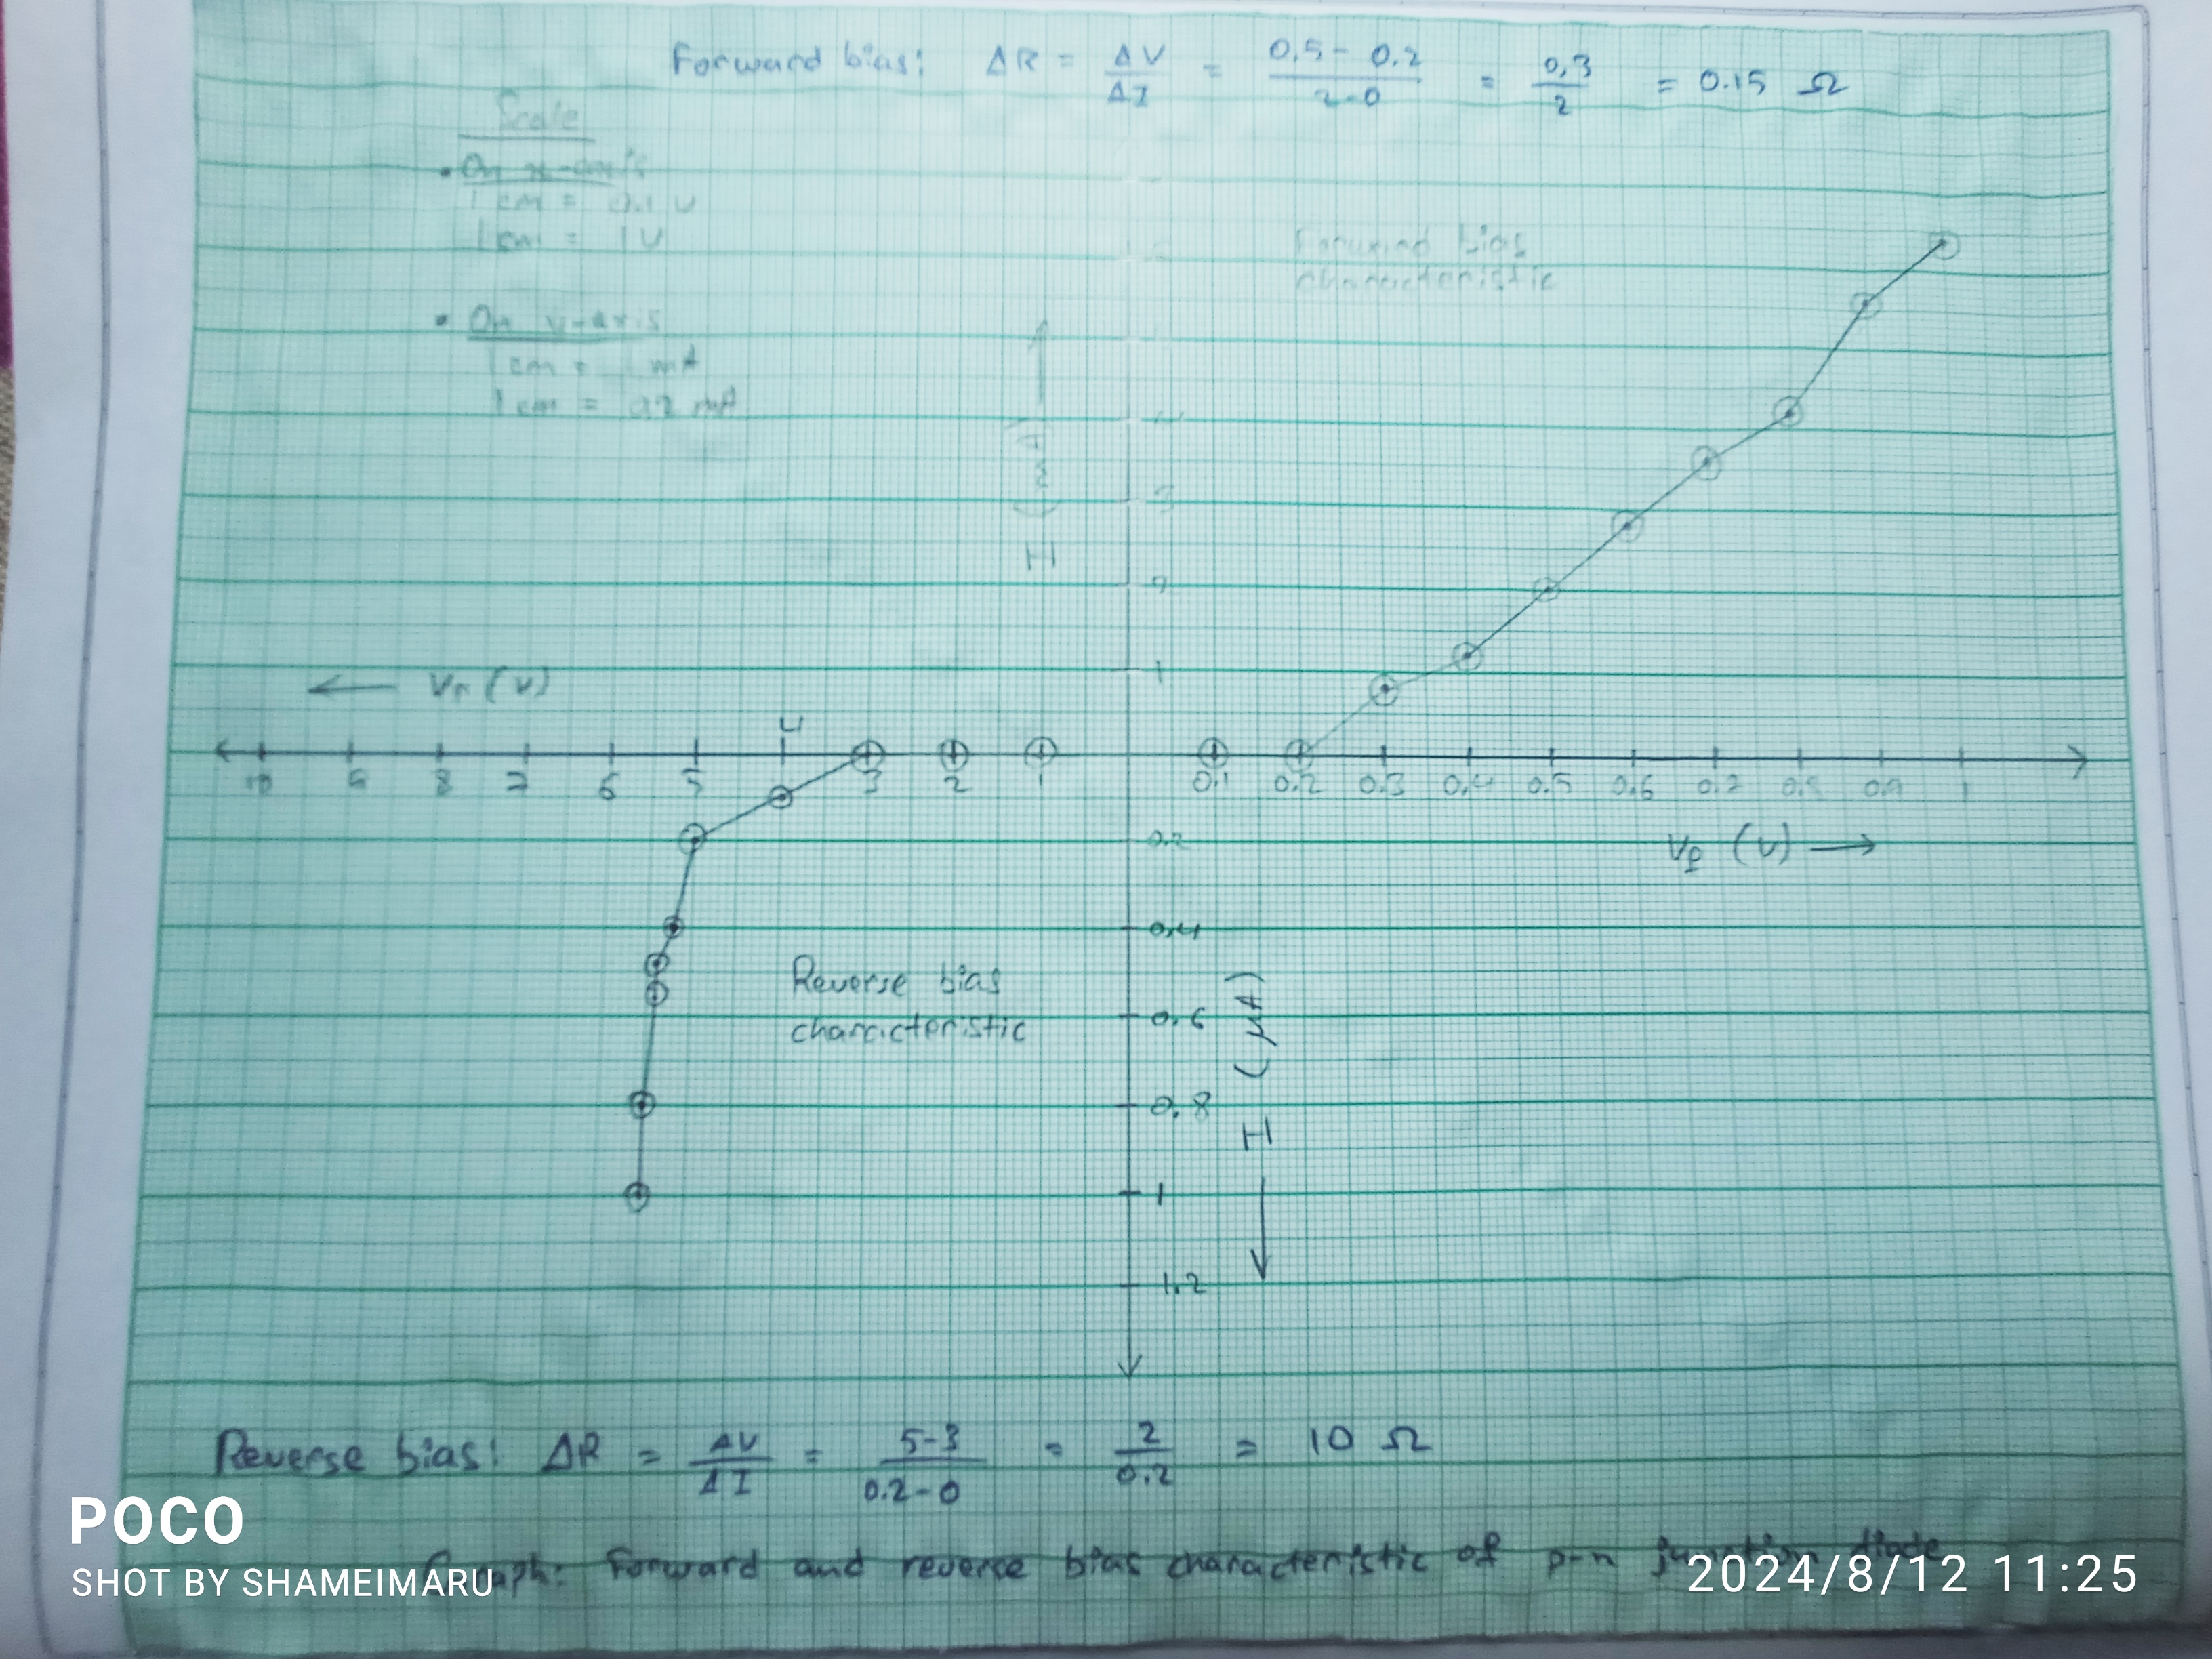 Forward bias: ΔR = ΔV/ΔI = 0.5 - 0.2/2-0 = 0.3/2 = 0.15 Ω
Scale
• On x-axis
1 cm = 0.1 V
1 cm = 1V
• On y-axis
1 cm = 1 mA
1 cm = 0.2 mA
Forward bias
characteristic
I (mA)
4
3
2
1
← Vr (V)
10 9 8 7 6 5 4 3 2 1 0.1 0.2 0.3 0.4 0.5 0.6 0.7 0.8 0.9 1
Vf (V) →
0.2
0.4
0.6
0.8
1
1.2
Reverse bias
characteristic
I (μA)
Reverse bias: ΔR = ΔV/ΔI = 5-3/0.2-0 = 2/0.2 = 10 Ω
Graph: Forward and reverse bias characteristic of p-n junction diode
POCO
SHOT BY SHAMEIMARU
2024/8/12 11:25